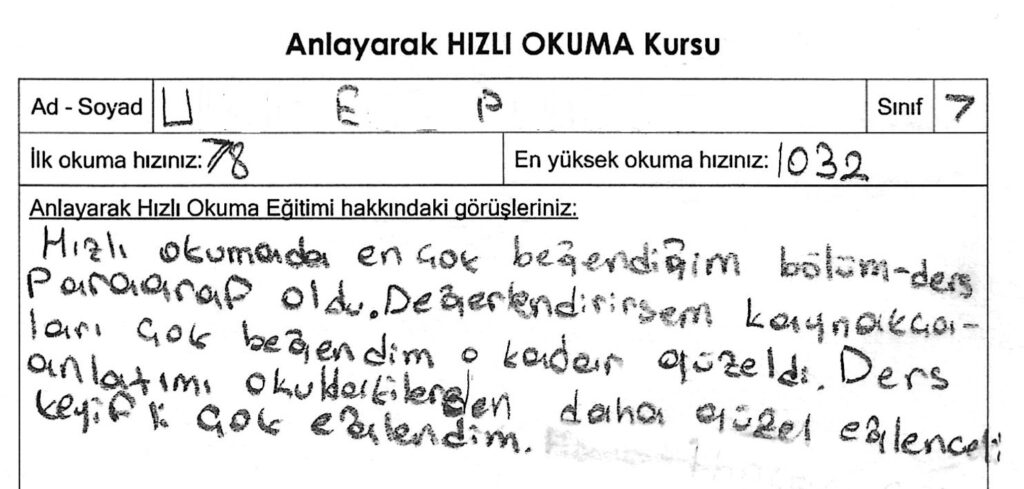 Anlayarak HIZLI OKUMA Kursu
Ad - Soyad U E P Sınıf 7
İlk okuma hızınız: 78 En yüksek okuma hızınız: 1032
Anlayarak Hızlı Okuma Eğitimi hakkındaki görüşleriniz:
Hızlı okumada en çok beğendiğim bölüm-ders
Paragraf oldu. Değerlendirirsem kaynakça-
ları çok beğendim o kadar güzeldi. Ders
anlatımı okuldakilerden daha güzel eğlenceli
keyifli çok eğlendim.